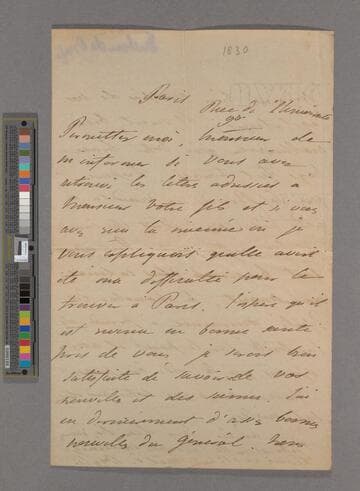 1830
Paris Rue de l'Université
90
Permettez moi, Monsieur de
m'informer si vous avez
retrouvé les lettres adressées a
Monsieur votre fils et si vous
avez reçu la mienne ou je
vous expliquois quelle avoit
été ma difficulté pour le
trouver a Paris. J'espere qu'il
est revenu en bonne santé
près de vous, je serois bien
satisfaite de savoir de vos
nouvelles et des siennes. J'ai
en ce moment d'assez bonnes
nouvelles du général. Nous